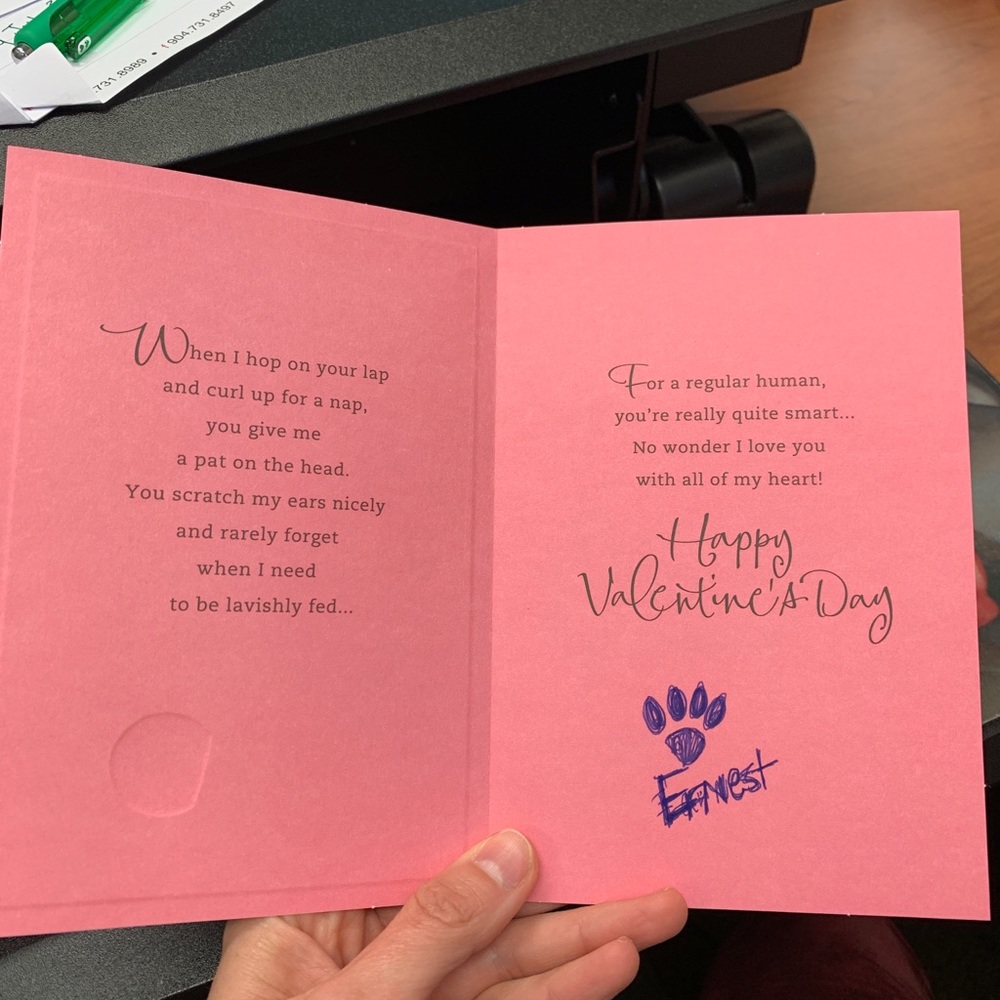 731.8989 • f 904.731.8497
When I hop on your lap
and curl up for a nap,
you give me
a pat on the head.
You scratch my ears nicely
and rarely forget
when I need
to be lavishly fed...
For a regular human,
you're really quite smart...
No wonder I love you
with all of my heart!
Happy
Valentine's Day
Ernest